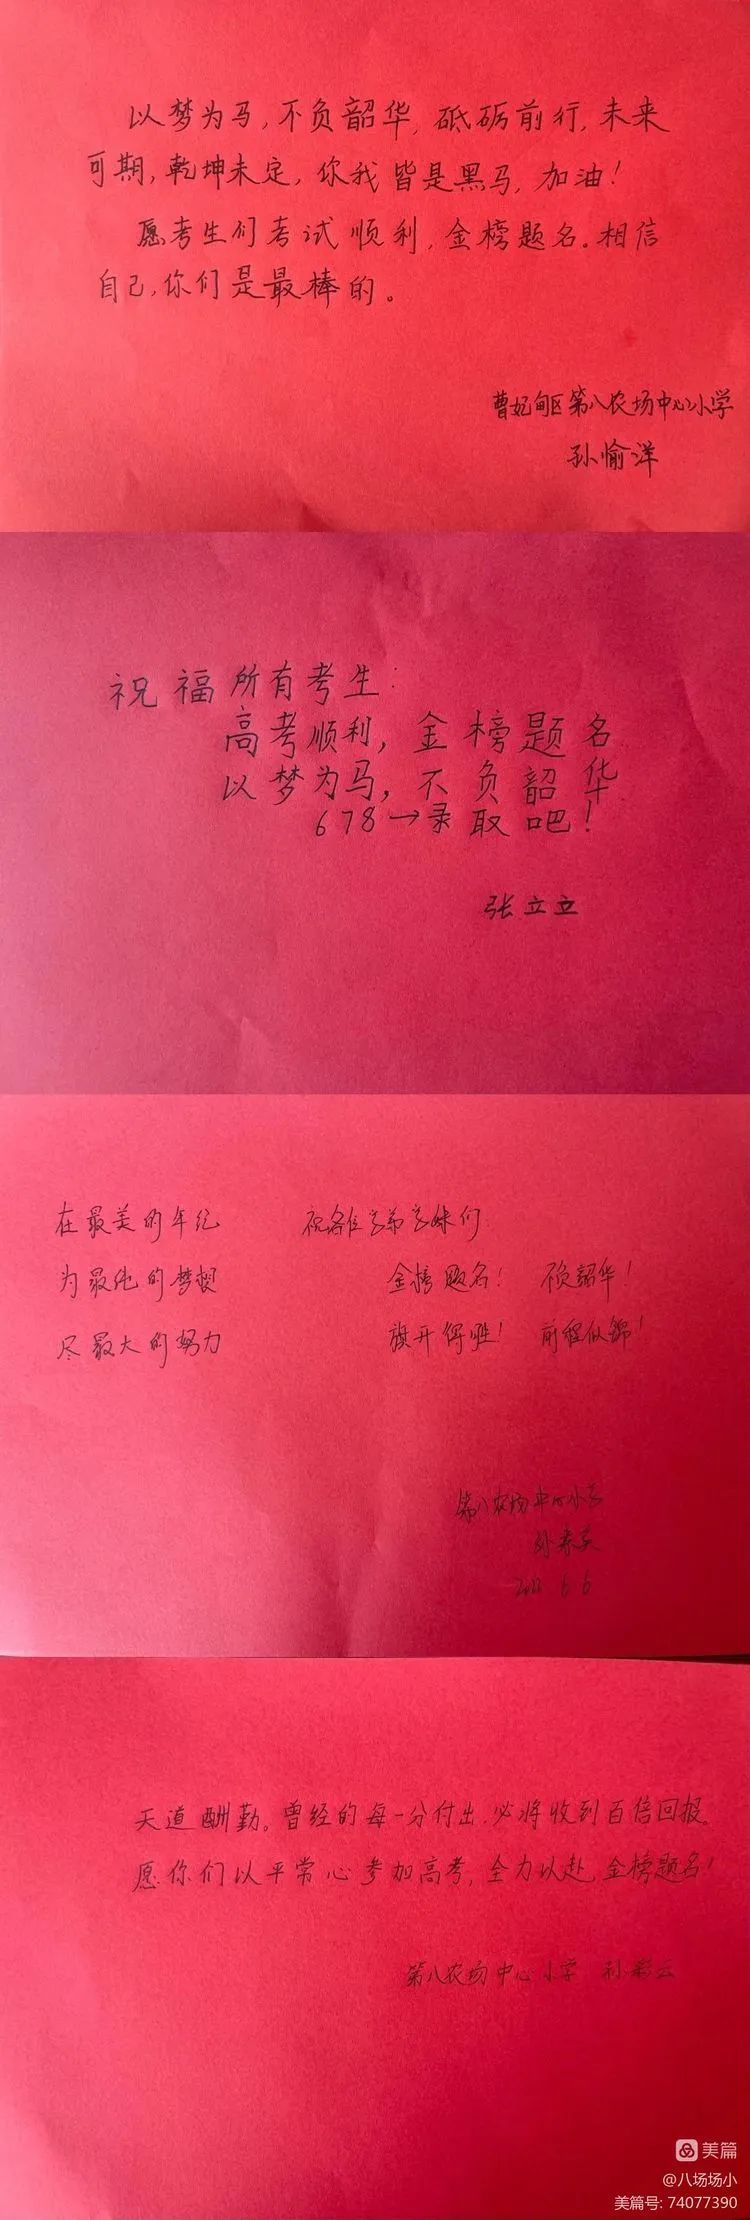 以梦为马,不负韶华,砥砺前行,未来
可期,乾坤未定,你我皆是黑马,加油!
愿考生们考试顺利,金榜题名。相信
自己,你们是最棒的。
曹妃甸区第八农场中心小学
孙愉洋
祝福所有考生:
高考顺利,金榜题名
以梦为马,不负韶华
678→录取吧!
张立立
在最美的年纪
为最纯的梦想
尽最大的努力
祝各位学弟学妹们:
金榜题名! 不负韶华!
旗开得胜! 前程似锦!
第八农场中心小学
6.6
天道酬勤。曾经的每一分付出,必将收到百倍回报。
愿你们以平常心参加高考,全力以赴,金榜题名!
第八农场中心小学 孙彩云
美篇
@八场场小
美篇号: 74077390